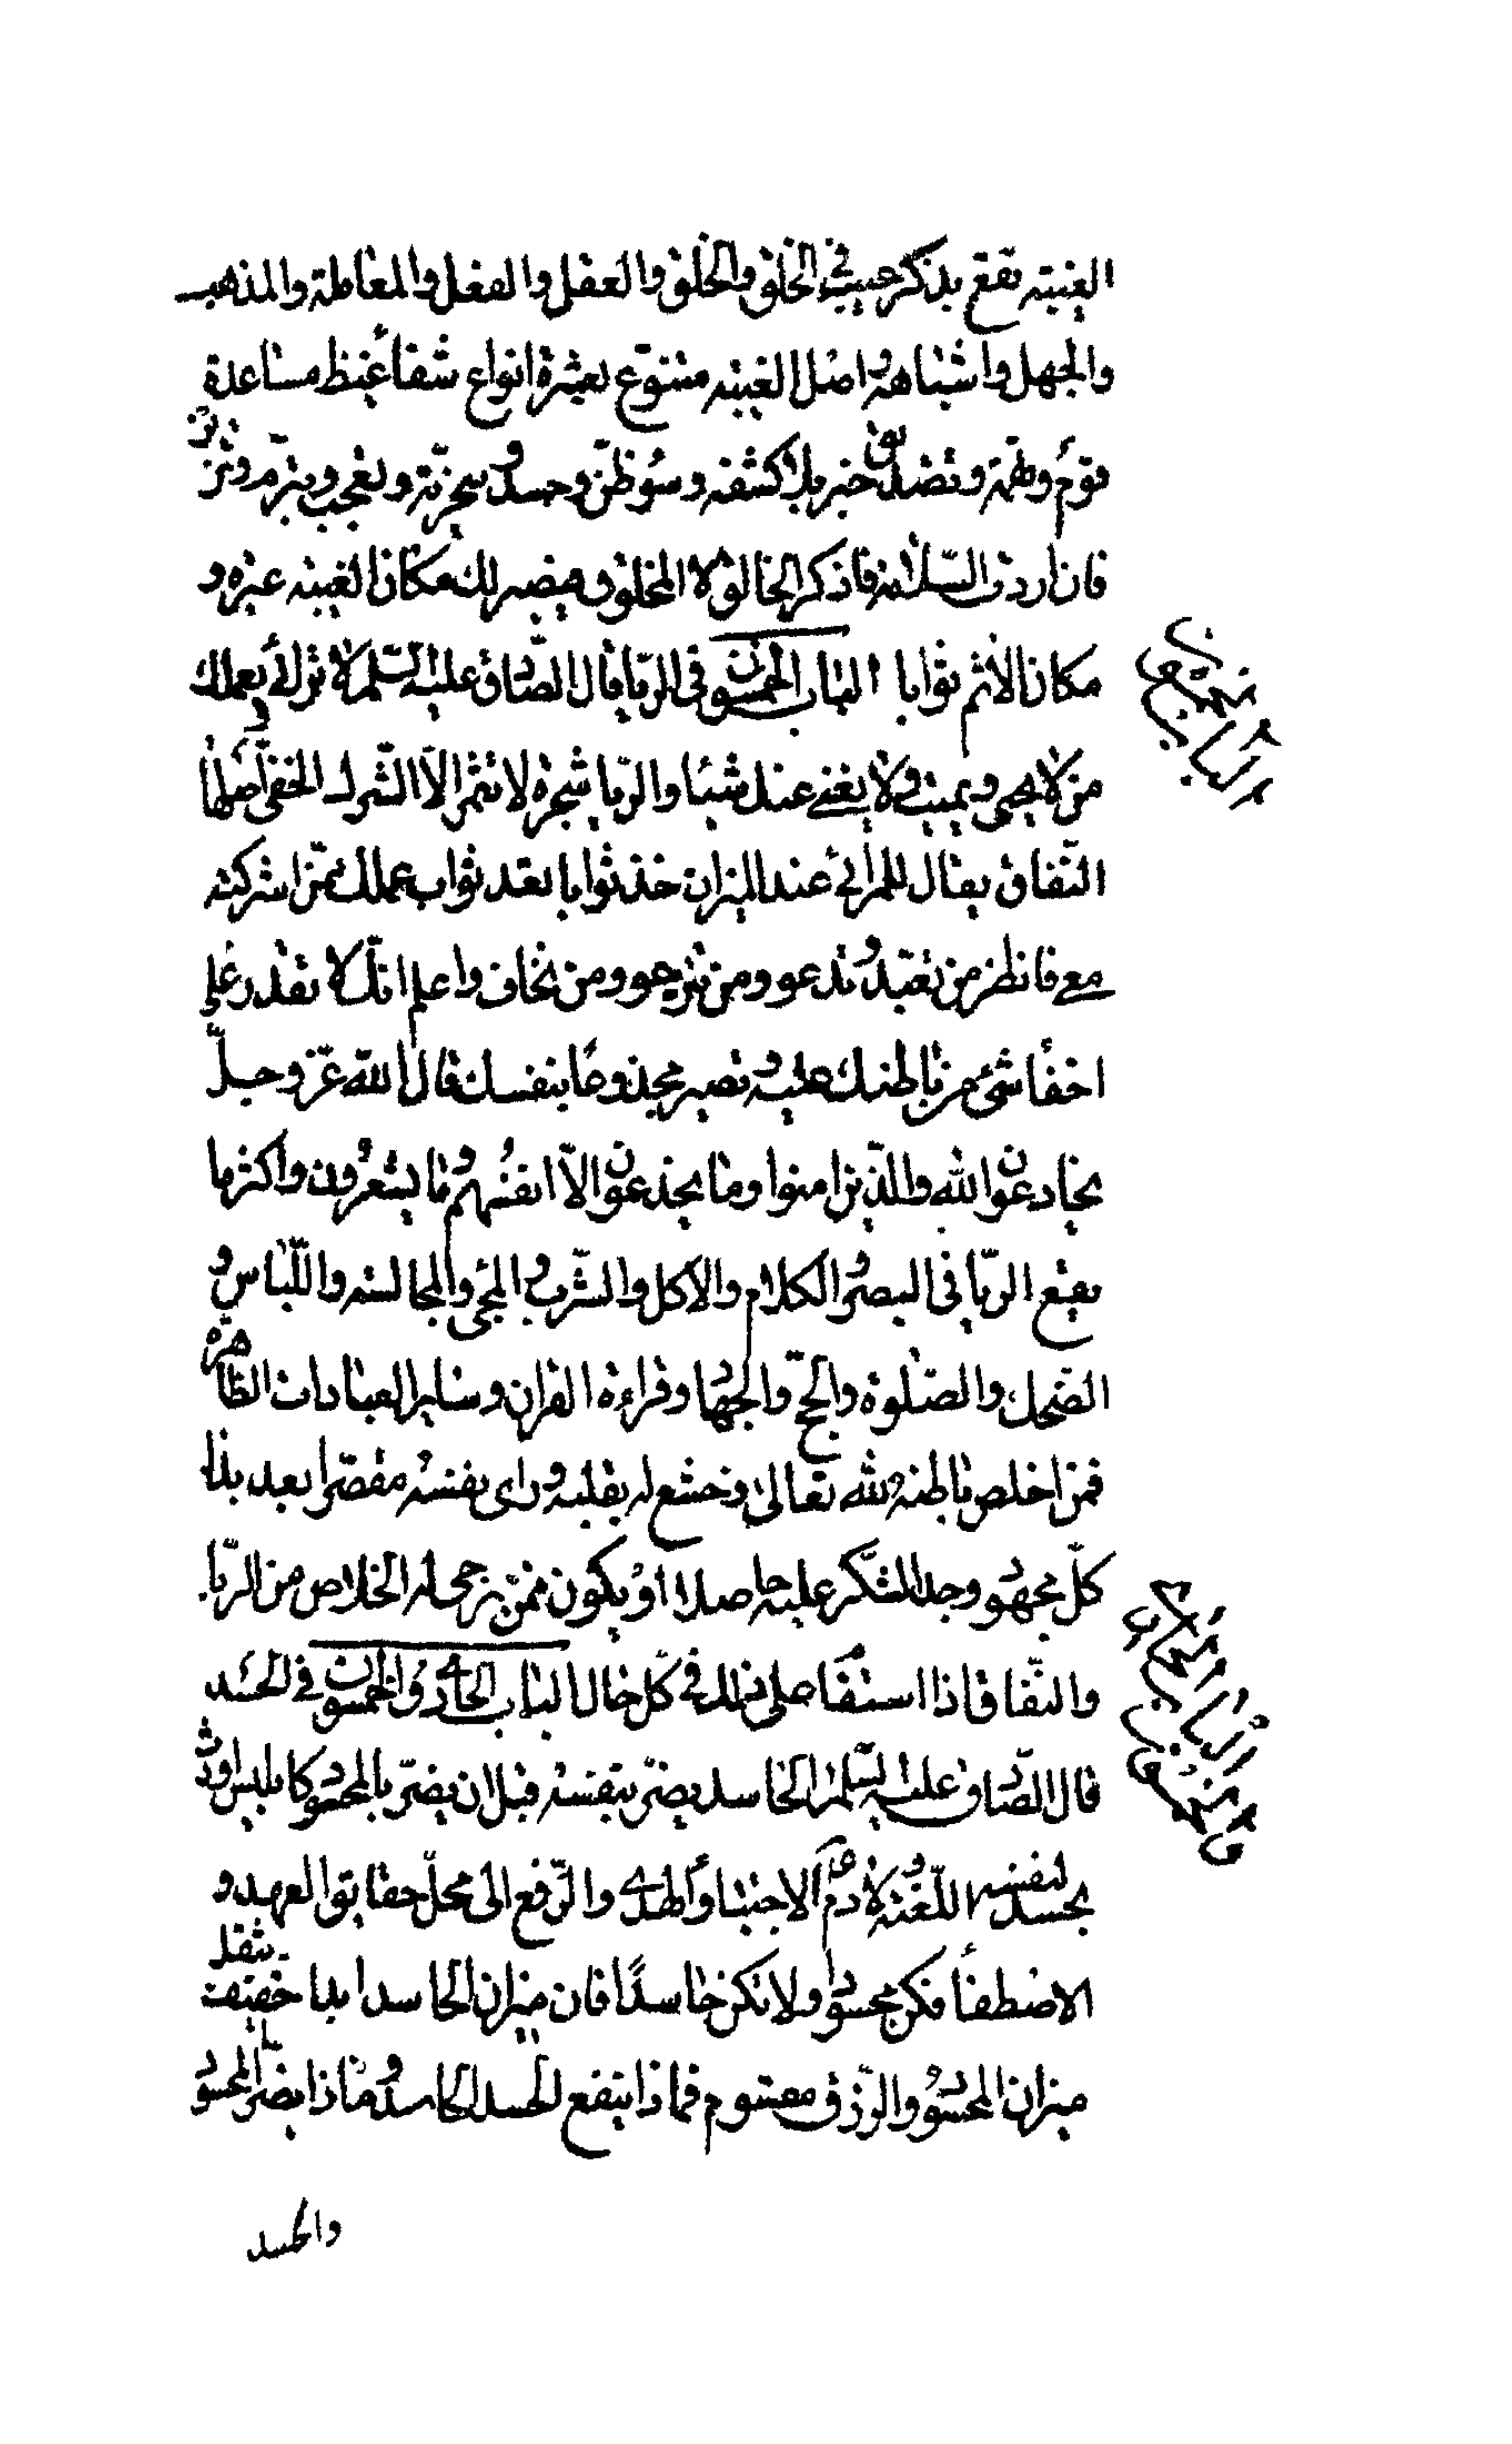 الغيبة تقع بذكر عيب في الخلق والخلق والعقل والفعل والمعاملة والمذهب
والجهل واشباهه واصل الغيبة متنوع بعشرة انواع شفاء غيظ مساعدة
قوم وتهمة وتصديق خبر بلا كشفه وسوء ظن وحسد وسخرية وتعجب وتبرم وتزين
فان اردت السلامة فاذكر الخالق لا المخلوق فيصير لك مكان الغيبة عبرة و
مكان الاثم ثوابا الباب الخمسون في الريا قال الصادق عليه السلم لا تراء بعملك
من لا يحيى ويميت ولا يغني عنك شيئا والريا شجرة لا تثمر الا الشرك الخفي واصلها
النفاق يقال للمرائي عند الميزان خذ ثوابا بعد ثواب عملك ممن اشركته
معي فانظر من تعبد وتدعو ومن ترجو ومن تخاف واعلم انك لا تقدر على
اخفاء شئ من باطنك عليه وتصير مخدوعا بنفسك قال الله عز وجل
يخادعون الله والذين امنوا وما يخدعون الا انفسهم وما يشعرون واكثر ما
يقع الريا في البصر والكلام والاكل والشرب والمجئ والمجالسة واللباس و
الضحك والصلوة والحج والجهاد وقراءة القران وساير العبادات الظاهرة
فمن اخلص باطنه لله تعالى وخشع له بقلبه وراى نفسه مقصرا بعد بذل
كل مجهود وجد الشكر عليه حاصلا او يكون ممن يرجى له الخلاص من الريا
والنفاق اذا استقام على ذلك في كل حال الباب الحادي والخمسون في الحسد
قال الصادق عليه السلم الحاسد يضر بنفسه قبل ان يضر بالمحسود كابليس اورث
بحسده لنفسه اللعنة ولادم ع الاجتباء والهدى والرفع الى محل حقايق العهد و
الاصطفاء فكن محسودا ولا تكن حاسدا فان ميزان الحاسد ابدا خفيف يثقل
ميزان المحسود والرزق مقسوم فماذا ينفع الحسد الحاسد وماذا يضر المحسود
والحسد
الباب الخمسون
الباب الحادي
والخمسون